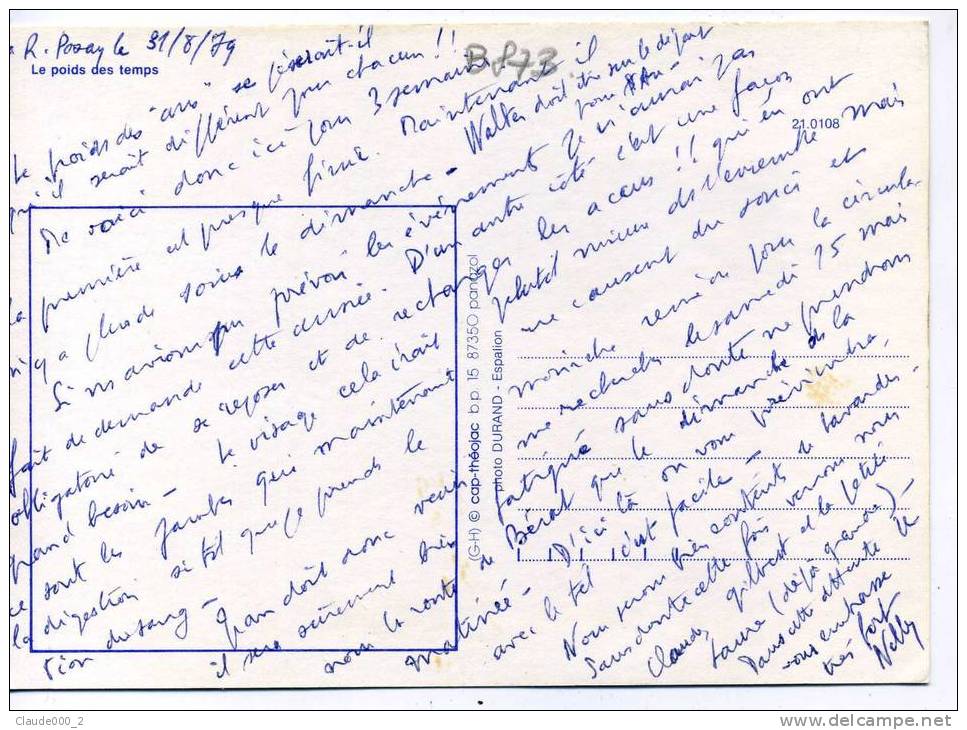 R. Posay le 31/8/79
Le poids des temps
B 873
21.0108
Le poids des "ans" se ferait-il
qu'il serait différent pour chacun !!
Me voici donc ici pour 3 semaines. La
première est presque finie. Maintenant il
n'y a plus de soins le dimanche - Walter doit être sur le départ
pour
Si ns avions pu prévoir les événements je n'aurai pas
fait de demande cette année. D'un autre côté c'est une façon
obligatoire de se reposer et de recharger les accus !! qui en ont
grand besoin - Le visage cela irait plutôt mieux ds l'ensemble mais
ce sont les jambes qui maintenant me causent du souci et
la digestion si tôt que je prends le
moniche remède pour la circula-
tion du sang - Jean doit donc venir me rechercher le samedi 15 mais
il sera sûrement bien fatigué sans doute ne prendrons
nous la route de Bérat que le dimanche ds la
matinée - D'ici là on vous préviendra,
avec le tel c'est facile -
Nous serons bien contents de bavarder -
Sans doute cette fois verrons nous
Claude, Gilbert et la petite
Laure (déjà grande) -
Dans cette attente je
vous embrasse
très fort
Nelly
(G-H) © cap-théojac b.p. 15 87350 panazol
photo DURAND - Espalion
Claude000_2
delcampe.net